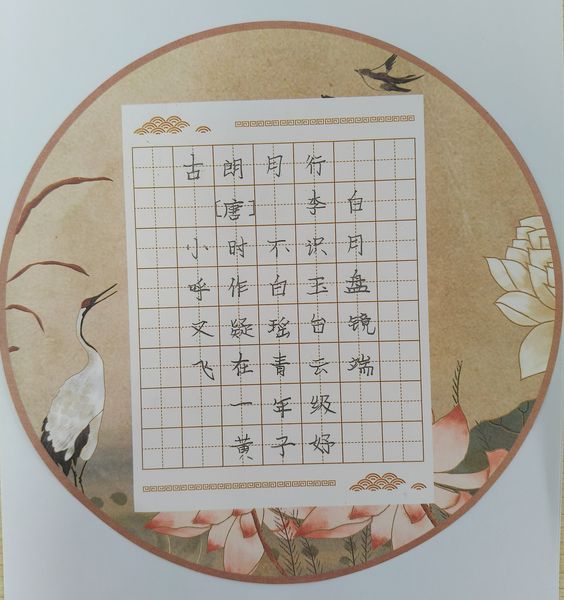 古朗月行
[唐] 李白
小时不识月
呼作白玉盘
又疑瑶台镜
飞在青云端
一年级
黄子妤